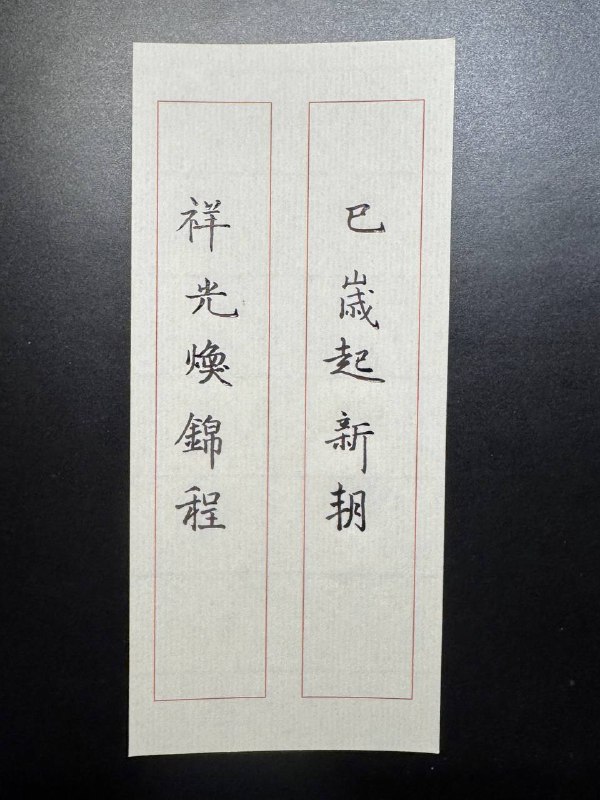 巳歲起新朝
祥光煥錦程